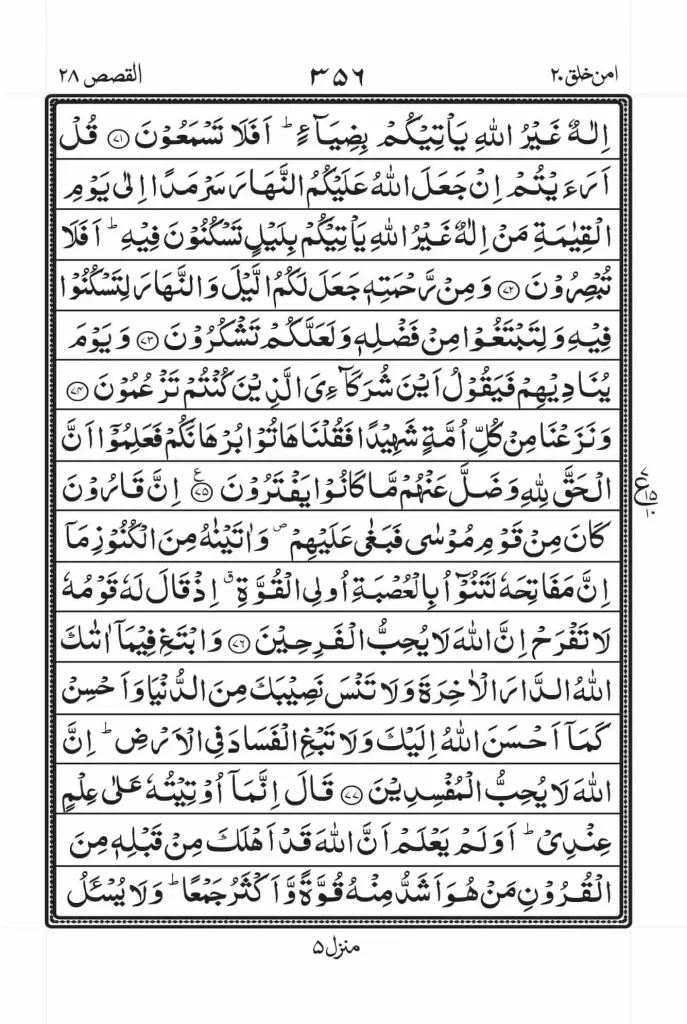 امن خلق ۲۰ ۳۵۶ القصص ۲۸
اِلٰهٌ غَيْرُ اللّٰهِ يَاْتِيْكُمْ بِضِيَآءٍ ؕ اَفَلَا تَسْمَعُوْنَ ﴿۷۱﴾ قُلْ
اَرَءَيْتُمْ اِنْ جَعَلَ اللّٰهُ عَلَيْكُمُ النَّهَارَ سَرْمَدًا اِلٰى يَوْمِ
الْقِيٰمَةِ مَنْ اِلٰهٌ غَيْرُ اللّٰهِ يَاْتِيْكُمْ بِلَيْلٍ تَسْكُنُوْنَ فِيْهِ ؕ اَفَلَا
تُبْصِرُوْنَ ﴿۷۲﴾ وَمِنْ رَّحْمَتِهٖ جَعَلَ لَكُمُ الَّيْلَ وَالنَّهَارَ لِتَسْكُنُوْا
فِيْهِ وَلِتَبْتَغُوْا مِنْ فَضْلِهٖ وَلَعَلَّكُمْ تَشْكُرُوْنَ ﴿۷۳﴾ وَيَوْمَ
يُنَادِيْهِمْ فَيَقُوْلُ اَيْنَ شُرَكَآءِيَ الَّذِيْنَ كُنْتُمْ تَزْعُمُوْنَ ﴿۷۴﴾
وَنَزَعْنَا مِنْ كُلِّ اُمَّةٍ شَهِيْدًا فَقُلْنَا هَاتُوْا بُرْهَانَكُمْ فَعَلِمُوْٓا اَنَّ
الْحَقَّ لِلّٰهِ وَضَلَّ عَنْهُمْ مَّا كَانُوْا يَفْتَرُوْنَ ﴿۷۵﴾ ع اِنَّ قَارُوْنَ
۷ ع ۱۵ ۱۰
كَانَ مِنْ قَوْمِ مُوْسٰى فَبَغٰى عَلَيْهِمْ ۪ وَاٰتَيْنٰهُ مِنَ الْكُنُوْزِ مَآ
اِنَّ مَفَاتِحَهٗ لَتَنُوْٓاُ بِالْعُصْبَةِ اُولِى الْقُوَّةِ ۗ اِذْ قَالَ لَهٗ قَوْمُهٗ
لَا تَفْرَحْ اِنَّ اللّٰهَ لَا يُحِبُّ الْفَرِحِيْنَ ﴿۷۶﴾ وَابْتَغِ فِيْمَآ اٰتٰىكَ
اللّٰهُ الدَّارَ الْاٰخِرَةَ وَلَا تَنْسَ نَصِيْبَكَ مِنَ الدُّنْيَا وَاَحْسِنْ
كَمَآ اَحْسَنَ اللّٰهُ اِلَيْكَ وَلَا تَبْغِ الْفَسَادَ فِى الْاَرْضِ ؕ اِنَّ
اللّٰهَ لَا يُحِبُّ الْمُفْسِدِيْنَ ﴿۷۷﴾ قَالَ اِنَّمَآ اُوْتِيْتُهٗ عَلٰى عِلْمٍ
عِنْدِيْ ؕ اَوَلَمْ يَعْلَمْ اَنَّ اللّٰهَ قَدْ اَهْلَكَ مِنْ قَبْلِهٖ مِنَ
الْقُرُوْنِ مَنْ هُوَ اَشَدُّ مِنْهُ قُوَّةً وَّاَكْثَرُ جَمْعًا ؕ وَلَا يُسْـَٔلُ
منزل ۵